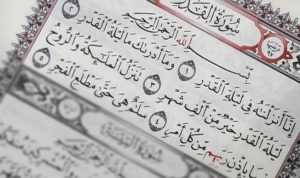 سُورَةُ الْقَدْرِ
بِسْمِ اللَّهِ الرَّحْمَٰنِ الرَّحِيمِ
إِنَّا أَنزَلْنَٰهُ فِي لَيْلَةِ الْقَدْرِ ١ وَمَا أَدْرَىٰكَ مَا لَيْلَةُ الْقَدْرِ ٢
لَيْلَةُ الْقَدْرِ خَيْرٌ مِّنْ أَلْفِ شَهْرٍ ٣ تَنَزَّلُ الْمَلَٰٓئِكَةُ وَالرُّوحُ
فِيهَا بِإِذْنِ رَبِّهِم مِّن كُلِّ أَمْرٍ ٤ سَلَٰمٌ هِيَ حَتَّىٰ مَطْلَعِ الْفَجْرِ ٥
سُورَةُ الْبَيِّنَةِ